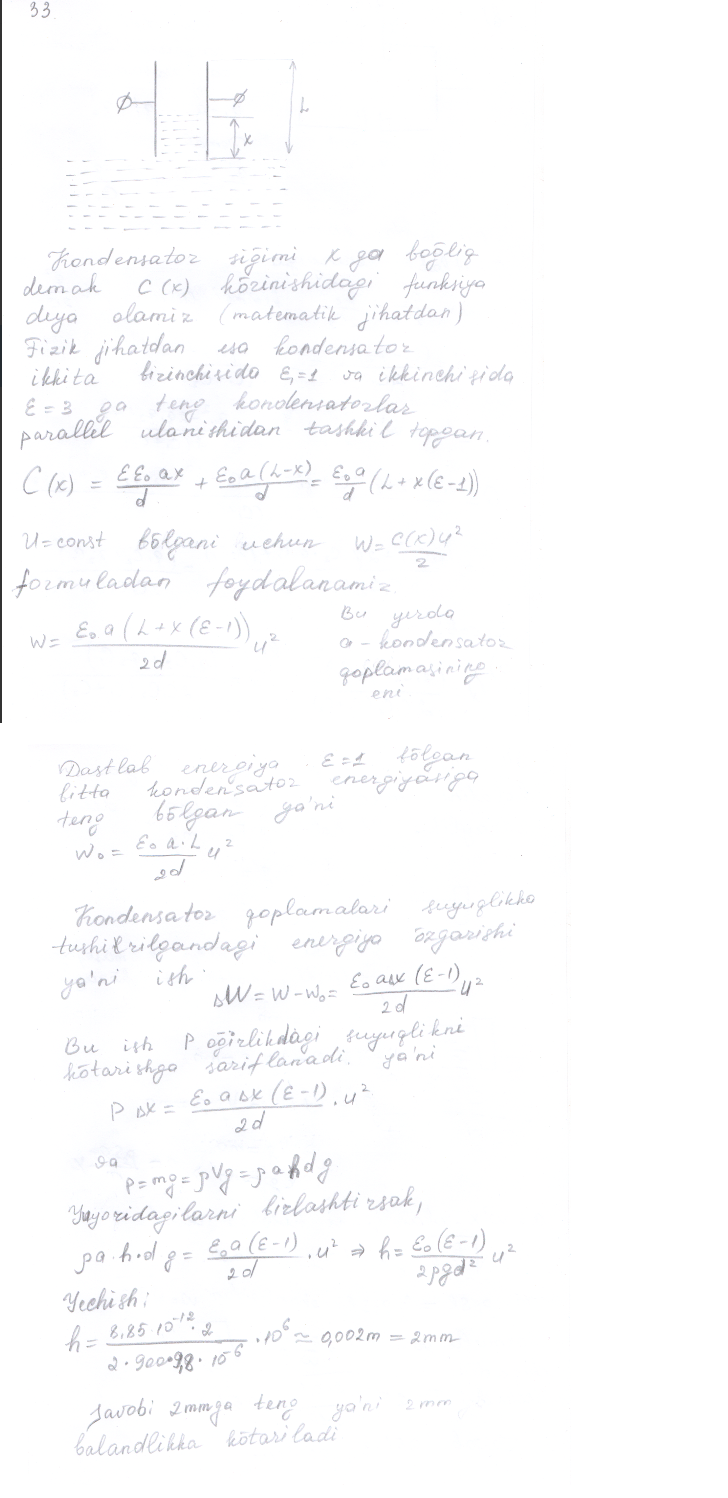 33
L
x
Kondensator siğimi x ga boğliq
demak C(x) kõrinishidagi funksiya
deya olamiz (matematik jihatdan)
Fizik jihatdan esa kondensator
ikkita birinchisida ε₁=1 va ikkinchisida
ε=3 ga teng kondensatorlar
parallel ulanishidan tashkil topgan.
C(x) = εε₀ax/d + ε₀a(L-x)/d = ε₀a/d (L+x(ε-1))
U=const bõlgani uchun W= C(x)U²/2
formuladan foydalanamiz.
W= ε₀a(L+x(ε-1))/2d U²
Bu yerda
a - kondensator
qoplamasining
eni
Dastlab energiya ε=1 bõlgan
bitta kondensator energiyasiga
teng bõlgan ya'ni
W₀ = ε₀a·L/2d U²
Kondensator qoplamalari suyuqlikka
tushirilgandagi energiya õzgarishi
ya'ni ish
ΔW = W-W₀ = ε₀aΔx(ε-1)/2d U²
Bu ish P oğirlikdagi suyuqlikni
kõtarishga sariflanadi. ya'ni
PΔx = ε₀aΔx(ε-1)/2d · U²
va
P=mg=ρVg=ρahdg
Yuqoridagilarni birlashtirsak,
ρa·h·d g = ε₀a(ε-1)/2d · U² ⇒ h= ε₀(ε-1)/2ρgd² U²
Yechish:
h= 8,85 10⁻¹²·2/2·900·9,8·10⁻⁶ · 10⁶ ≃ 0,002m = 2mm
Javobi 2mmga teng ya'ni 2mm
balandlikka kõtariladi